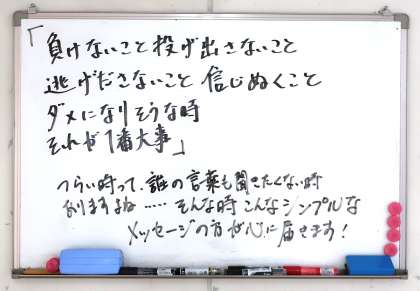 「負けないこと 投げ出さないこと
逃げださないこと 信じぬくこと
ダメになりそうな時
それが1番大事」
つらい時って、誰の言葉も聞きたくない時
ありますよね…… そんな時こんなシンプルな
メッセージの方が心に届きます!